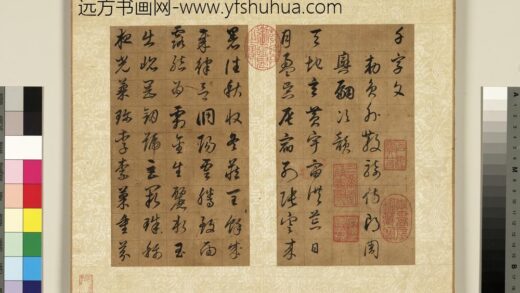 远方书画网-www.yfshuhua.com
千字文
勅員外散騎侍郎周
興嗣次韻
天地玄黃宇宙洪荒日
月盈昃辰宿列張寒來
暑往秋收冬藏閏餘成
歲律呂調陽雲騰致雨
露結為霜金生麗水玉
出崑岡劍號巨闕珠稱
夜光菓珍李柰菜重芥